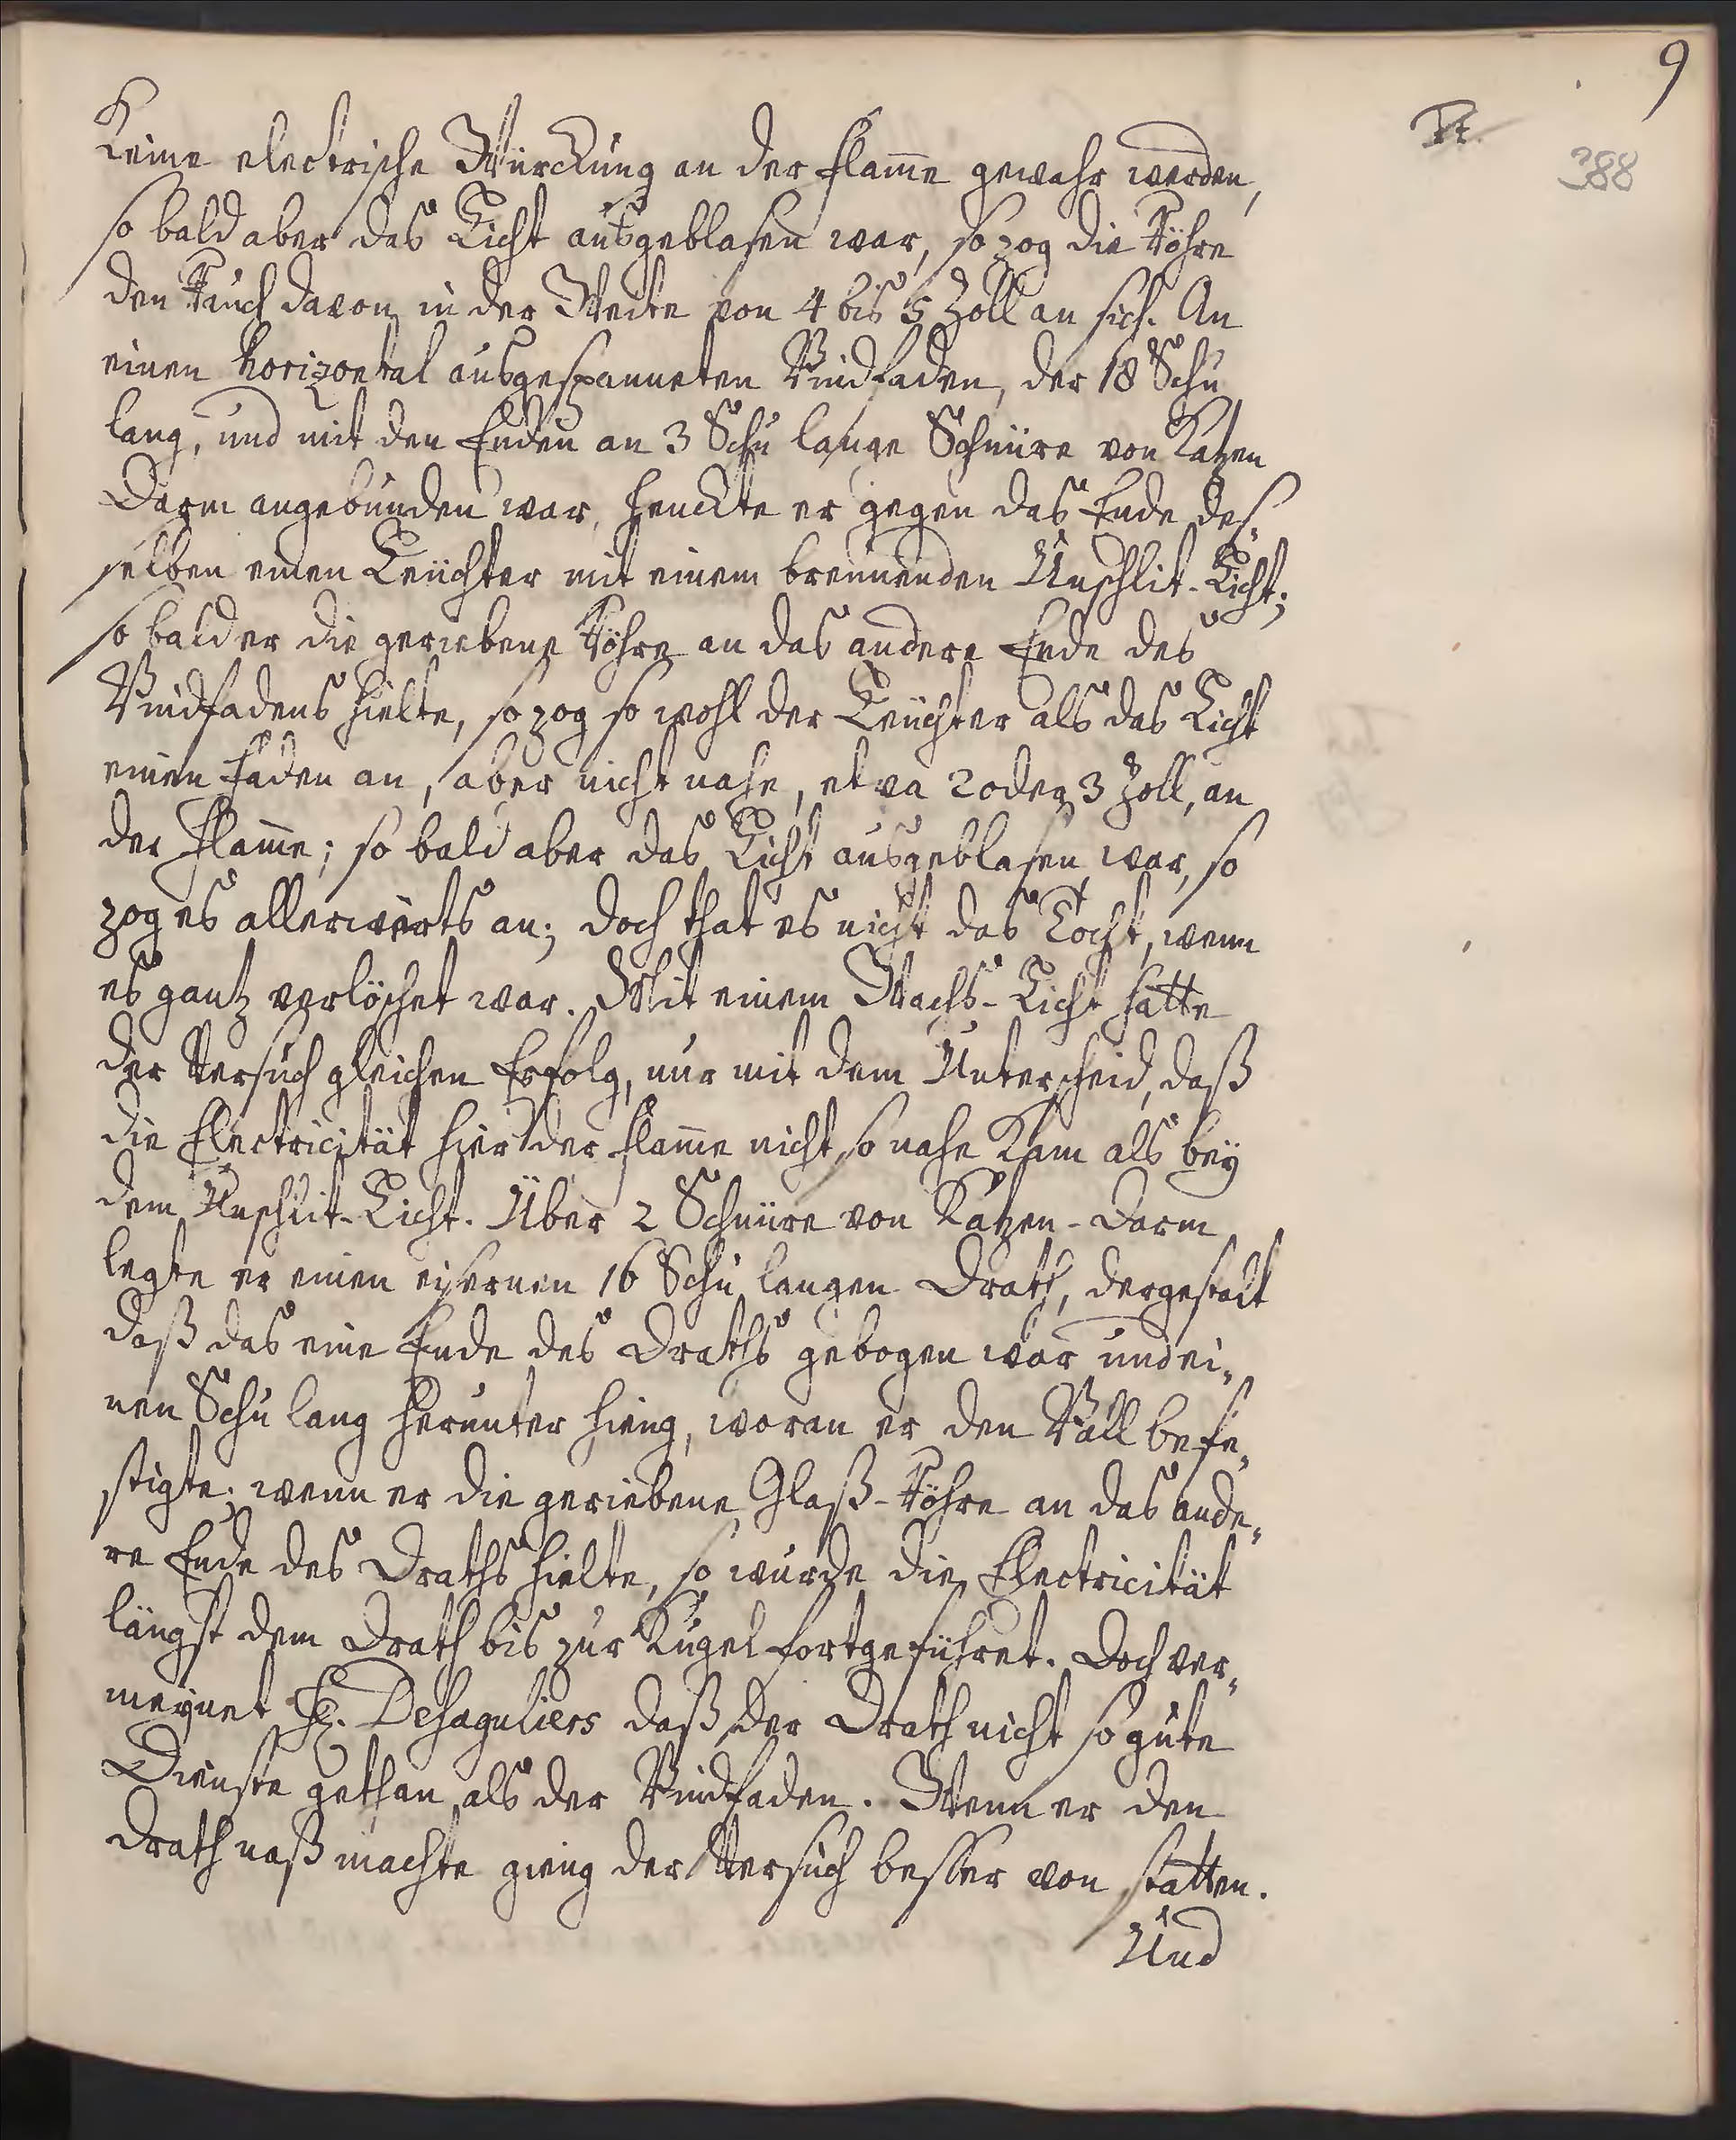 9
388
Keine electrische Würckung an der flam̅e gewahr werden,
so bald aber das Licht ausgeblasen war, so zog die Röhre
den Rauch davon in der Weite von 4 bis 5 Zoll an sich. An
einen horizontal ausgespanneten Bindfaden, der 18 Schu
lang, und mit den Enden an 3 Schu lange Schnüre von Katzen
Darm angebunden war, henckte er gegen das Ende des,,
selben einen Leuchter mit einem brennenden Unschlit-Licht;
so bald er die geriebene Röhre an das andere Ende des
Bindfadens hielte, so zog so wohl der Leuchter als das Licht
einen faden an, aber nicht nahe, etwa 2 oder 3 Zoll, an
der Flam̅e; so bald aber das Licht ausgeblasen war, so
zog es allerwärts an; doch that es nicht das Tocht, wenn
es gantz verlöschet war. Mit einem Wachs-Licht hatte
der Versuch gleichen Erfolg, nur mit dem Unterscheid, daß
die Electricität hier der flam̅e nicht so nahe kam als bey
dem Unschlit-Licht. Über 2 Schnüre von Katzen-Darm
legte er einen eisernen 16 Schu langen Drath, dergestalt
daß das eine Ende des Draths gebogen war und ei,,
nen Schu lang herunter hieng, woran er den Ball befe,,
stigte; wenn er die geriebene Glaß-Röhre an das ande,,
re Ende des Draths hielte, so wurde die Electricität
längst dem Drath bis zur Kugel fortgeführet. Doch ver,,
meynet H. Desaguliers daß der Drath nicht so gute
Dienste gethan als der Bindfaden. Wenn er den
Drath naß machte gieng der Versuch besser von statten.
Und